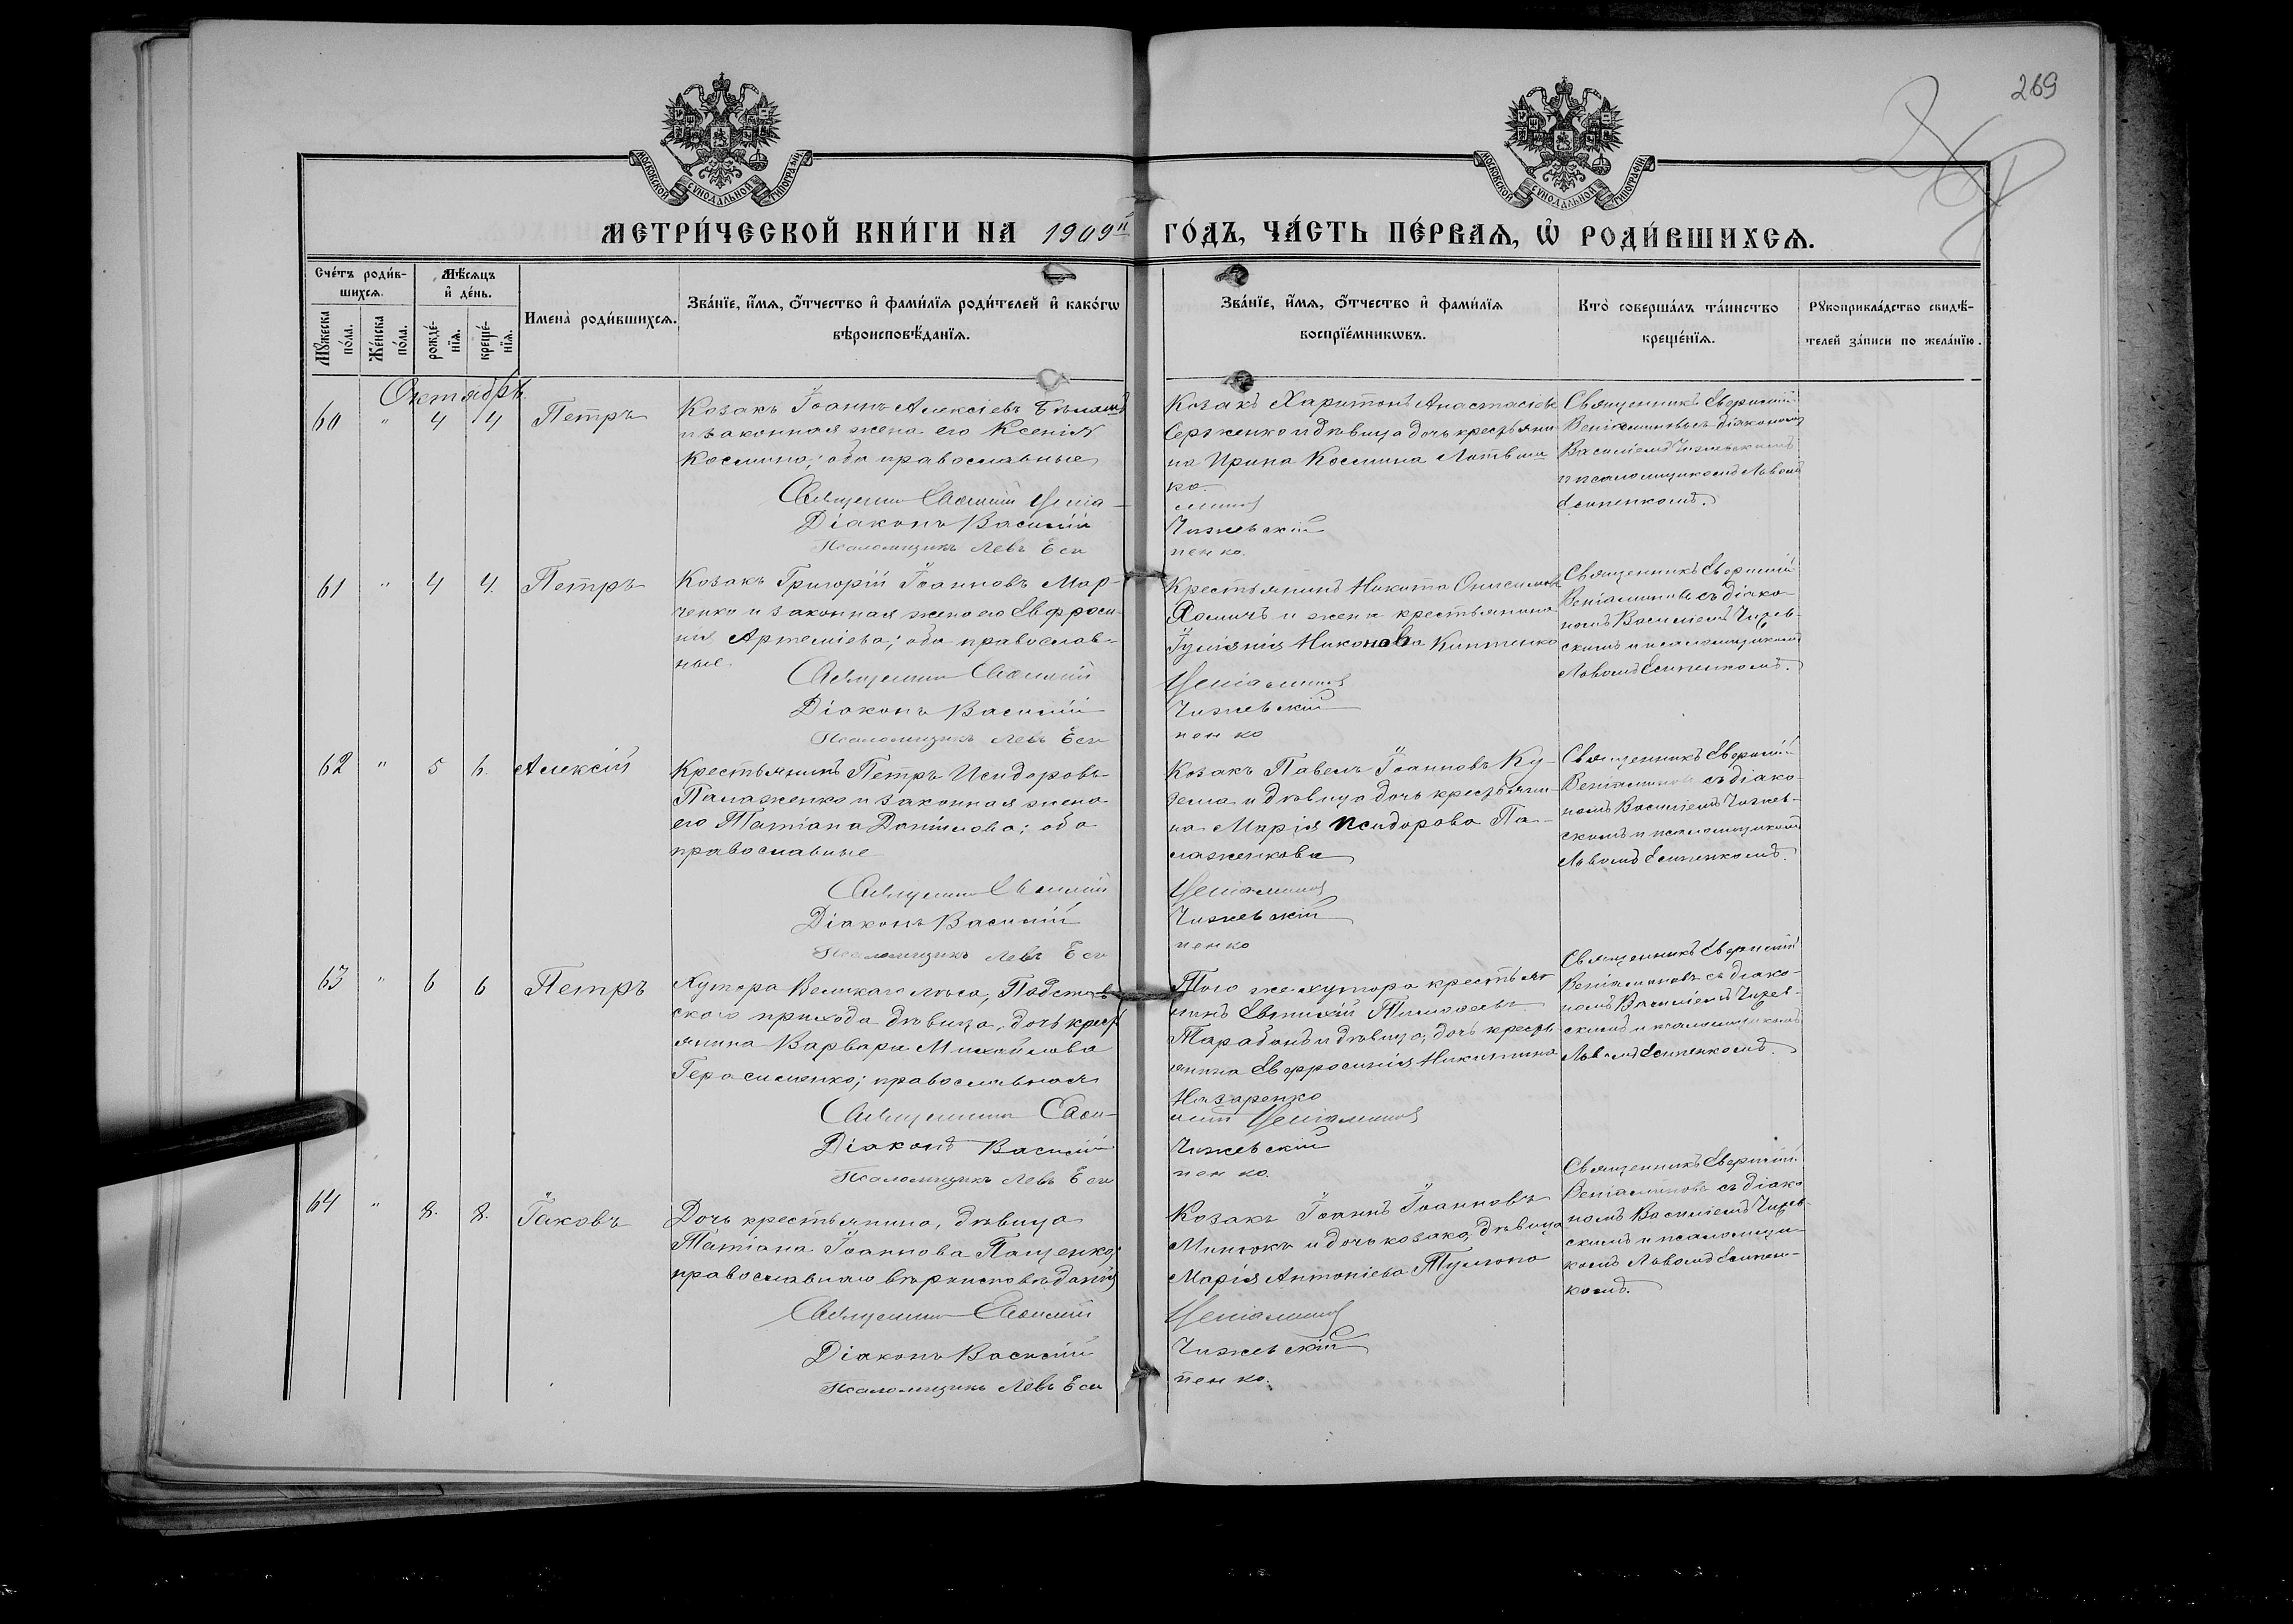 269
МОСКОВСКОЙ СУНОДАЛЬНОЙ ТИПОГРАФІИ
МОСКОВСКОЙ СУНОДАЛЬНОЙ ТИПОГРАФІИ
МЕТРИ́ЧЕСКОЙ КНИ́ГИ НА 1909й ГО́ДЪ, ЧА́СТЬ ПЕ́РВАЯ, Ѡ РОДИ́ВШИХСЯ.
Сче́тъ роди́в-
шихся.
Мꙋ́жеска по́ла.
Же́нска по́ла.
Мѣ́сяцъ
и҆ де́нь.
рожде́-
нїя.
креще́-
нїя.
Имена̀ роди́вшихся.
Зва́нїе, и҆́мя, ѻ҆́тчество и҆ фами́лїя роди́телей и҆ како́гѡ
вѣроисповѣ́данїя.
Зва́нїе, и҆́мя, ѻ҆́тчество и҆ фами́лїя
воспрїе́мникѡвъ.
Кто̀ соверша́лъ та́инство
креще́нїя.
Рꙋкоприкла́дство свидѣ́-
телей за́писи по жела́нїю.
Октябрь
60 " 4 4 Петръ
Козакъ Іоаннъ Алексіевъ
и законная жена его Ксенія
Космина; оба православные
Священник Евфимій Веніа-
Діаконъ Василій
Псаломщикъ Левъ Еси
Козакъ Харитонъ Анастасіевъ
Серженко и дѣвица дочь крестьяни
на Ирина Космина Литвин
ко.
минов
Чижевскій
пенко.
Священникъ Евфимій
Веніаминовъ съ діакономъ
Василіемъ Чижевскимъ
и псаломщикомъ Львомъ
Есипенкомъ.
61 " 4 4. Петръ
Козакъ Григорій Іоанновъ Мар-
ченко и законная жена его Евфроси-
нія Артеміева; оба православ-
ные.
Священник Евфимій
Діаконъ Василій
Псаломщикъ Левъ Еси
Крестьянинъ Никита Онисимовъ
Хомичъ и жена крестьянина
Іуліанія Никонова
Веніаминов
Чижевскій
пенко
Священникъ Евфимій
Веніаминовъ съ діако-
номъ Василіемъ Чижев-
скимъ и псаломщикомъ
Львомъ Есипенкомъ.
62 " 5 6 Алексій
Крестьянинъ Петръ Исидоровъ
Палаженко и законная жена
его Татіана Даніилова; оба
православные
Священник Евфимій
Діаконъ Василій
Псаломщикъ Левъ Еси
Козакъ Павелъ Іоанновъ Ку-
зема и дѣвица дочь крестьяни-
на Марія Исидорова Па-
лаженкова
Веніаминов
Чижевскій
пенко
Священникъ Евфимій
Веніаминовъ съ діако-
номъ Василіемъ Чижев-
скимъ и псаломщикомъ
Львомъ Есипенкомъ.
63 " 6 6 Петръ
Хутора Великаго лѣса,
скаго прихода дѣвица, дочь крест
янина Варвара Михайлова
Герасименко; православная
Священник Евфи-
Діаконъ Василій
Псаломщикъ Левъ Еси
Того же хутора крестья
нинъ Евтихій Тимофеевъ
и дѣвица, дочь кресть
янина Евфросинія Никитина
Назаренко
мій Веніаминов
Чижевскій
пенко.
Священникъ Евфимій
Веніаминовъ съ діако-
номъ Василіемъ Чижев-
скимъ и псаломщикомъ
Львомъ Есипенкомъ.
64 " 8. 8. Іаковъ
Дочь крестьянина, дѣвица
Татіана Іоаннова Пащенко;
православнаго вѣроисповѣданія
Священник Евфимій
Діаконъ Василій
Псаломщикъ Левъ Еси
Козакъ Іоаннъ Іоанновъ
Минюкъ и дочь козака, дѣвица
Марія Антоніева
Веніаминов
Чижевскій
пенко.
Священникъ Евфимій
Веніаминовъ съ діако
номъ Василіемъ Чижев-
скимъ и псаломщи-
комъ Львомъ Есипен-
комъ.